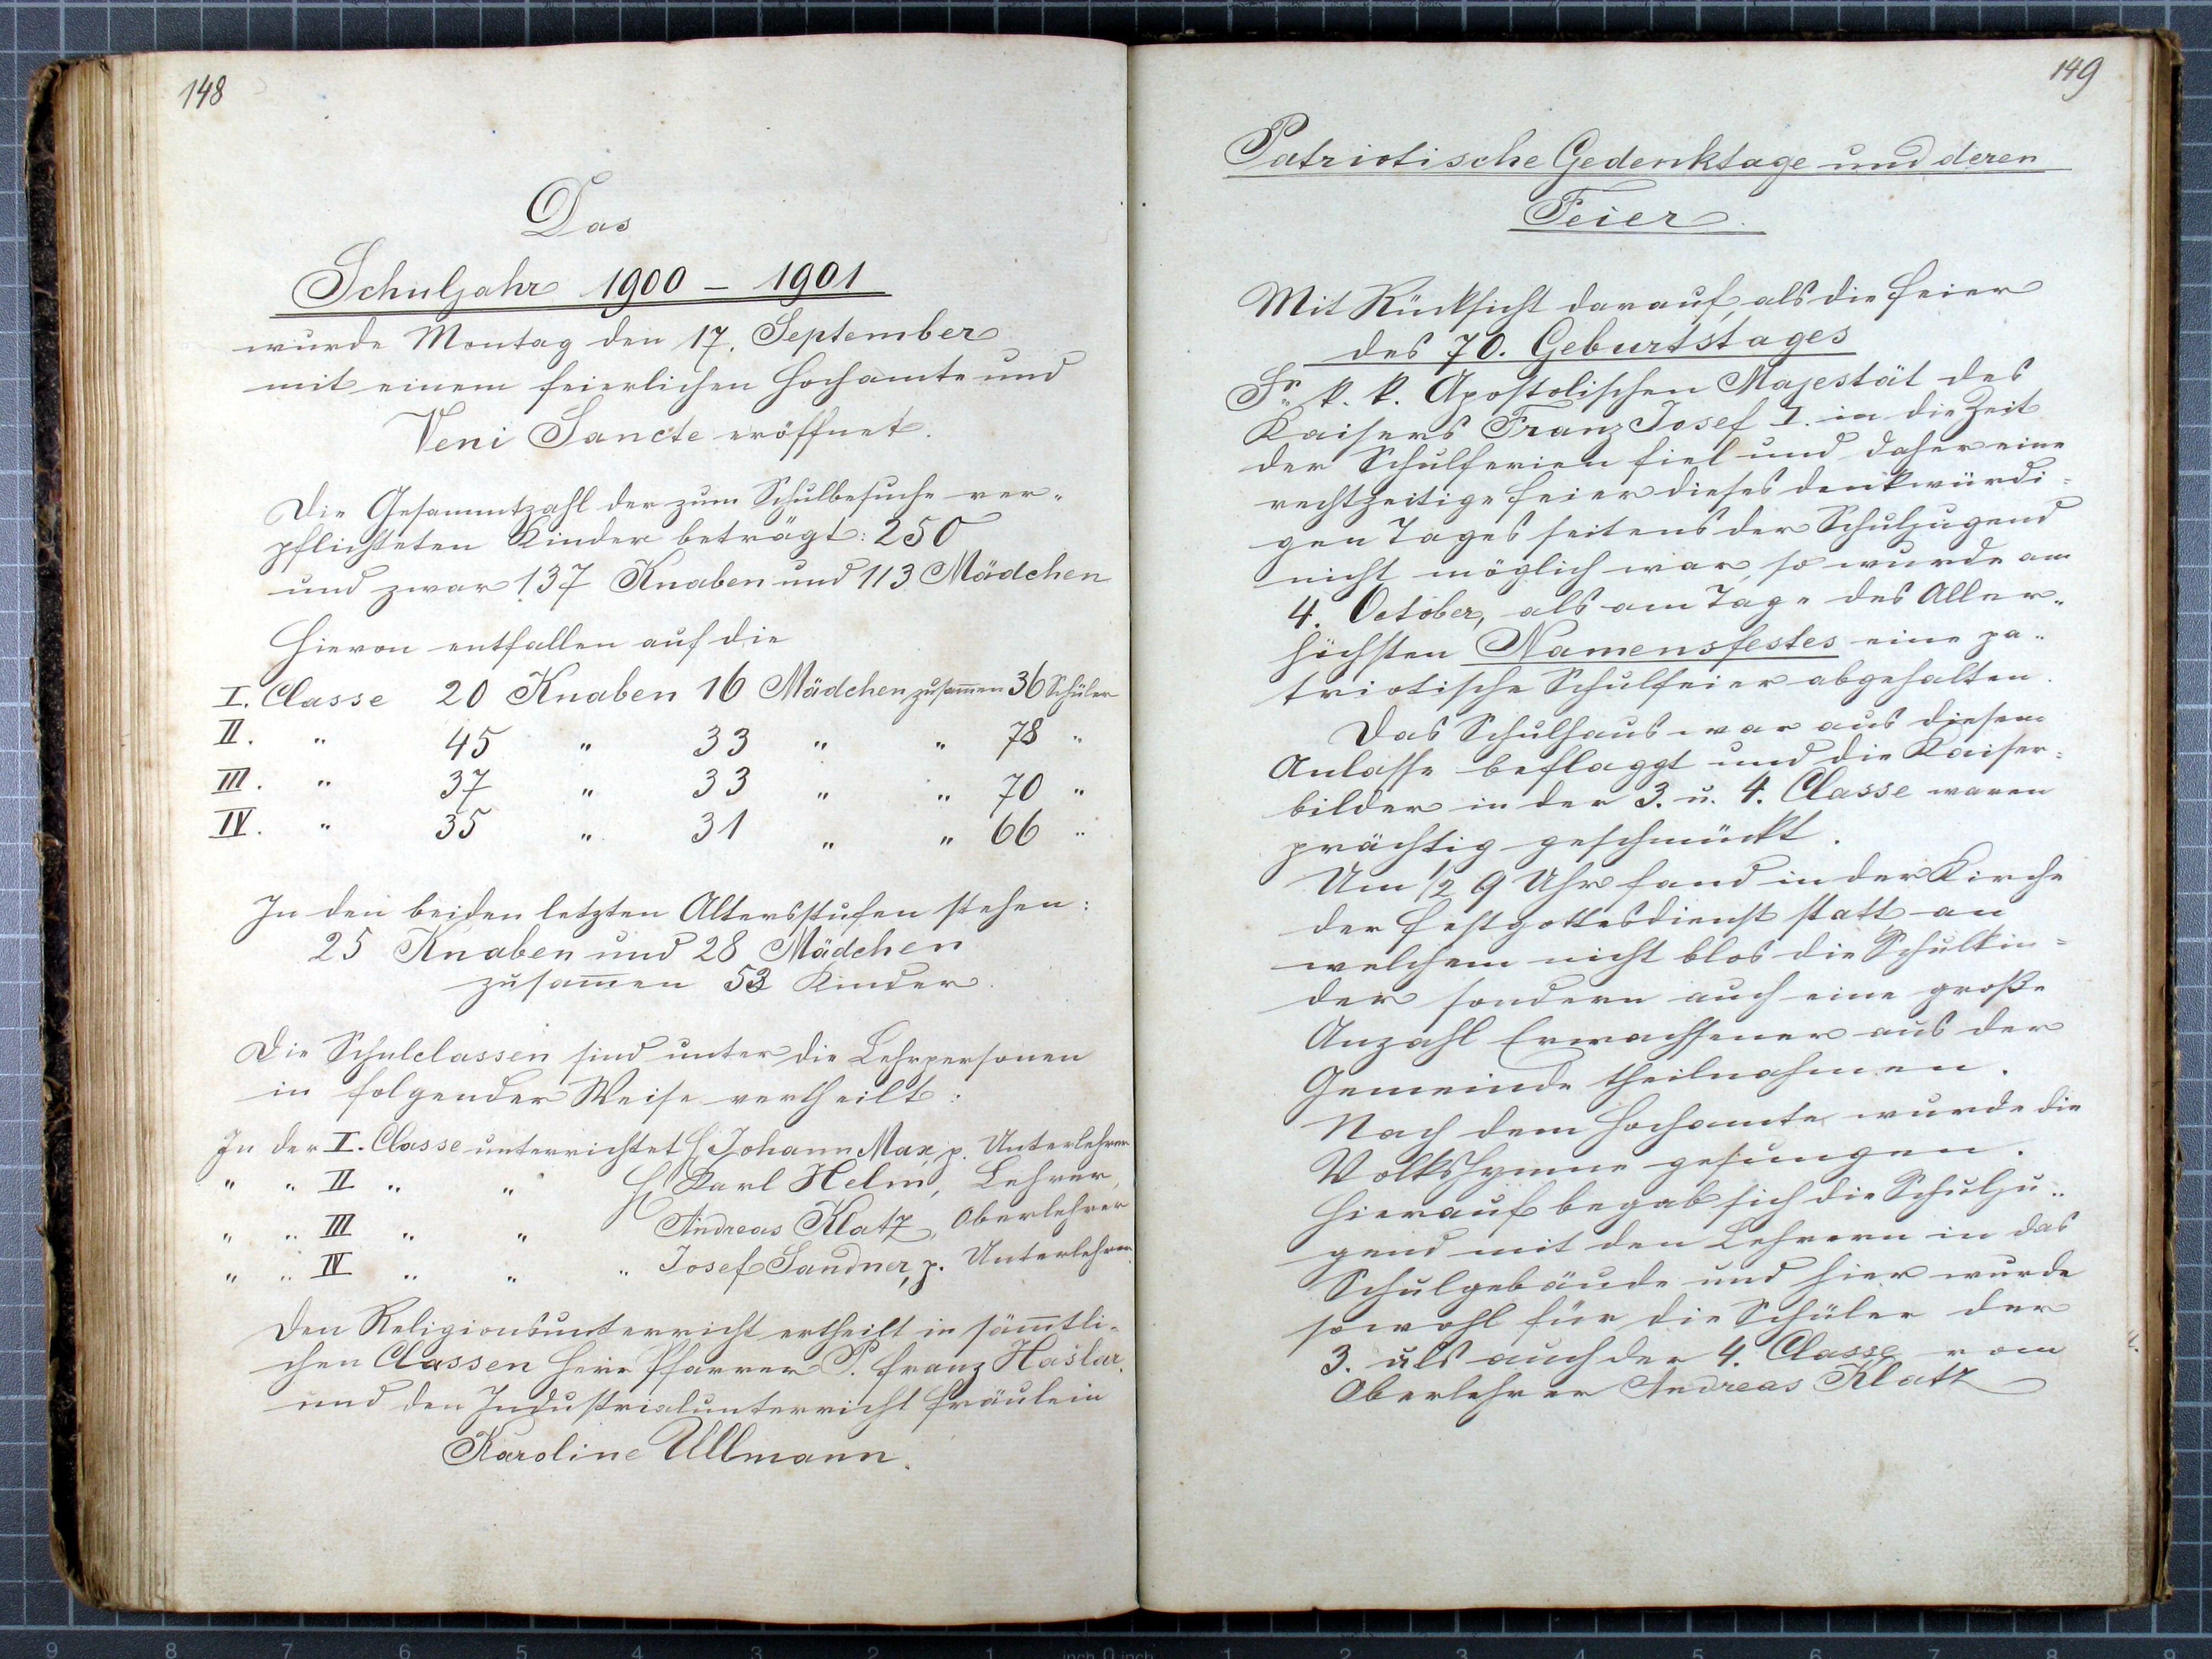 148
Das
Schuljahr 1900 – 1901
wurde Montag den 17. September
mit einem feierlichen Hochamte und
Veni Sancte eröffnet.
Die Gesammtzahl der zum Schulbesuche ver„
pflichteten Kinder beträgt: 250
und zwar 137 Knaben und 113 Mädchen
Hievon entfallen auf die
I. Classe 20 Knaben 16 Mädchen zusam̅en 36 Schüler
II. „ 45 „ 33 „ „ 78 „
III. „ 37 „ 33 „ „ 70 „
IV. „ 35 „ 31 „ „ 66 „
In den beiden letzten Altersstufen stehen:
25 Knaben und 28 Mädchen
zusam̅en 53 Kinder.
Die Schulclassen sind unter die Lehrpersonen
in folgender Weise vertheilt:
In der I. Classe unterrichtet H Johann Max, p. Unterlehrer
„ „ II „ „ H Karl Helm, Lehrer,
„ „ III „ „ Andreas Klatz, Oberlehrer
„ „ IV „ „ „ Josef Sandner, p. Unterlehrer.
Den Religionsunterricht ertheilt in säm̅tli„
chen Classen Herr Pfarrer P. Franz Hašlar.
und den Industrialunterricht Fräulein
Karoline Ullmann.
149
Patriotische Gedenktage und deren
Feier.
Mit Rücksicht darauf, als die Feier
des 70. Geburtstages
Sr. k. k. Apostolischen Majestät des
Kaisers Franz Josef I. in die Zeit
der Schulferien fiel und daher eine
rechtzeitige Feier dieses denkwürdi=
gen Tages seitens der Schuljugend
nicht möglich war, so wurde am
4. October, als am Tage des Aller„
höchsten Namensfestes eine pa„
triotische Schulfeier abgehalten.
Das Schulhaus war aus diesem
Anlasse beflaggt und die Kaiser=
bilder in der 3. u. 4. Classe waren
prächtig geschmückt.
Um 1/2 9 Uhr fand in der Kirche
der Festgottesdienst statt an
welchem nicht blos die Schulkin=
der sondern auch eine große
Anzahl Erwachsener aus der
Gemeinde theilnahmen.
Nach dem Hochamte wurde die
Volkshymne gesungen.
Hierauf begab sich die Schulju„
gend mit den Lehrern in das
Schulgebäude und hier wurde
sowohl für die Schüler der
3. als auch der 4. Classe vom
Oberlehrer Andreas Klatz
9 8 7 6 5 4 3 2 1 inch 0 inch 1 2 3 4 5 6 7 8 9